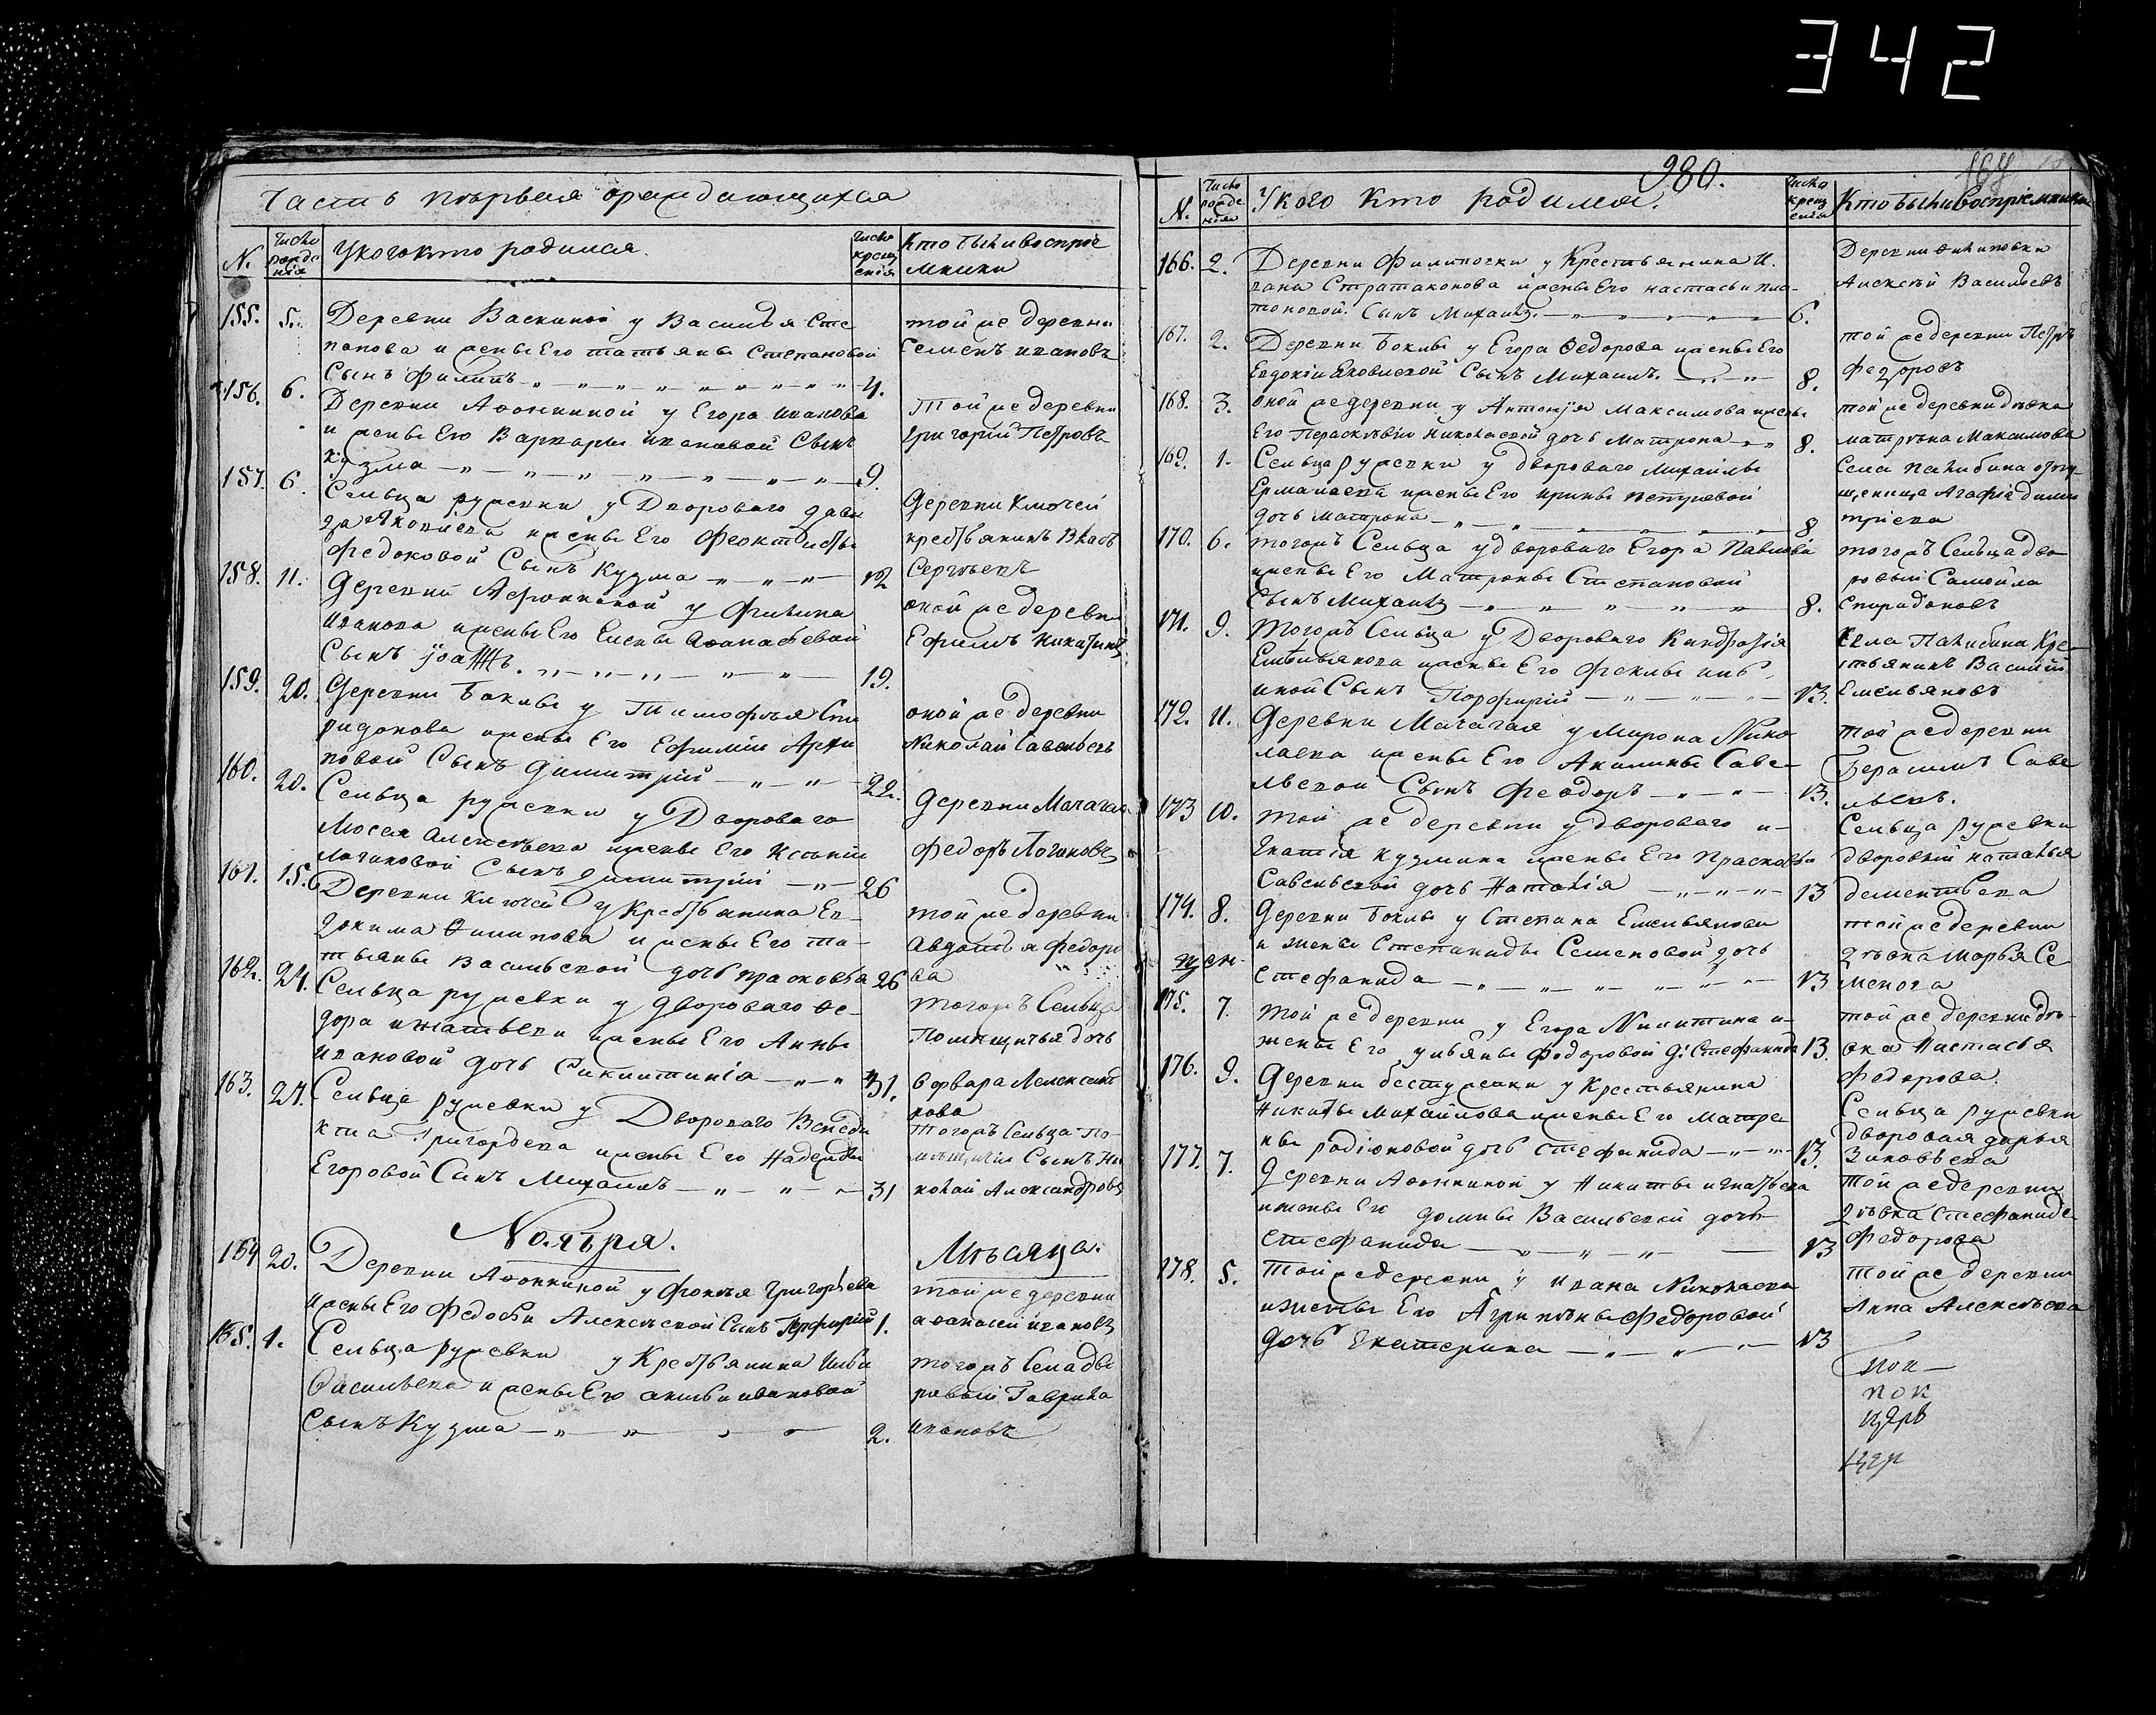 342
Часть первыя ораждающихся
N.
Число рожденія
У кого кто родился.
Число крещенія
Кто были воспріемники
155. 5. Деревни Васкиной у Василья Сте
панова и жены Его татьяны Степановой
Сынъ филипъ 4.
той же деревни
Семенъ ивановъ
156. 6. Деревни Афонкиной у Егора иванова
и жены Его Варвары ивановой Сынъ
кузма 9.
Той же деревни
григорий Петровъ
157. 6. Сельца ружевки у Двороваго давы
да Яковлева жены Его Феоктисты
федоковой Сынъ Кузма 12
деревни Ключей
крестьянинъ Власъ
Сергѣевъ
158. 11. деревни Афонкиной у филипа
иванова и жены Его Елены
Сынъ 19.
оной же деревни
Ефимъ никитинъ
159. 20. деревни Боклы у Тимофѣя Спи
ридонова жены Его Ефимии Архи
повой Сынъ димитрий 22.
оной же деревни
Николай Савельевъ
160. 20. Сельца ружевки у Двороваго
Мосея алексѣева жены Его Ксении
логиновой Сынъ димитрий 26
деревни Мачагая
федоръ Логиновъ
161. 15. Деревни Ключей у Крестьянина Ев-
докима Филипова и жены Его та-
тьяны Васильевой дочь прасковья 26
той же деревни
Авдотья федоро
ва
162. 24. Сельца ружевки у двороваго Фе-
дора игнатьева жены Его Анны
ивановой дочь 31.
тогожъ Сельца
Помещичья дочь
Варвара Александ
рова
163. 27. Сельца ружевки у Двороваго Венеди
кта Григорьева жены Его Надежды
Егоровой Сынъ Михаилъ 31
тогожъ Сельца по-
Сынъ Ни
колай Александровъ
Ноября.
Мѣсяца.
164 20. Деревни Афонкиной у фокѣя Григорьева
жены Его Федосьи Алексѣевой Сынъ Порфирий 1.
той же деревни
афанасей ивановъ
165. 1. Сельца ружевки у Крестьянина Ильи
Васильева и жены Его ивановой
Сынъ Кузма 2.
тогожъ Села дво
ровый Гаврила
ивановъ
980.
164
N.
Число рожденія
У кого кто родился.
Число крещенія
Кто были воспріемники
166. 2. Деревни Филиповки у Крестьянина И.
вана Стратаконова жены Его настасьи пла-
тоновой. Сынъ Михаилъ. 6.
Деревни Филиповки
Алексѣй Васильевъ
167. 2. Деревни Боклы у Егора Федорова жены Его
Евдокіи Яковлевой Сынъ Михаилъ. 8.
той же деревни Петръ
федоровъ
168. 3. оной же деревни у Антонія Максимова жены
Его Пераскѣвіи Николаевой дочь Матрона 8.
той же деревни дѣвка
матрѣна Максимова
169. 1. Сельца ружевки у двороваго михаилы
Ермалаева жены Его ирины петровой
дочь матрона 8
Села Пахибина
Агафіа дими
тріева
170. 6. тогожъ Сельца у двороваго Егора Павлова
жены Его Матроны Степановой
Сынъ Михаилъ 8.
тогожъ Сельца дво
ровый Самойла
Спиридоновъ
171. 9. тогожъ Сельца у Двороваго Кандратія
Емельянова жены Его феклы иль
иной Сынъ Порфирий 13.
Села Пахибина Кре
стьянинъ Василій
Емельяновъ
172. 11. деревни Мачагая у Мирона Нико
лаева жены Его Акилины Саве
льевой Сынъ Феодоръ 13.
той же деревни
Герасимъ Саве
льевъ.
173 10. той же деревни у двороваго и-
гнатія кузмина жены Его Прасковьи
Савельевой дочь Наталія 13
Сельца ружевки
дворовый наталья
дементьева
174. 8. деревни Боклы у Степана Емельянова
и жены Степаниды Семеновой дочь
Стефанида 13
той же деревни
дѣвка Марья Се
менова
175. 7. той же деревни у Егора Никитина и-
жены Его ульяны федоровой д: Стефанида 13.
той же деревни дѣ-
вка Настасья
Федорова.
176. 9. деревни бестужевки у Крестьянина
Никиты михайлова жены Его Матре
ны родіоновой дочь стефанида 13.
Сельца ружевки
дворовая дарья
Зиновьева
177. 7. деревни Афонкиной у Никиты игнатьева
и жены Его домны Васильевой дочь
стефанида 13
той же деревни
дѣвка стефанида
федорова
178. 5. Той же деревни у ивана Николаева
и жены Его Агрипѣны федоровой
дочь Екатерина 13
Той же деревни
Анна Алексѣева
пок